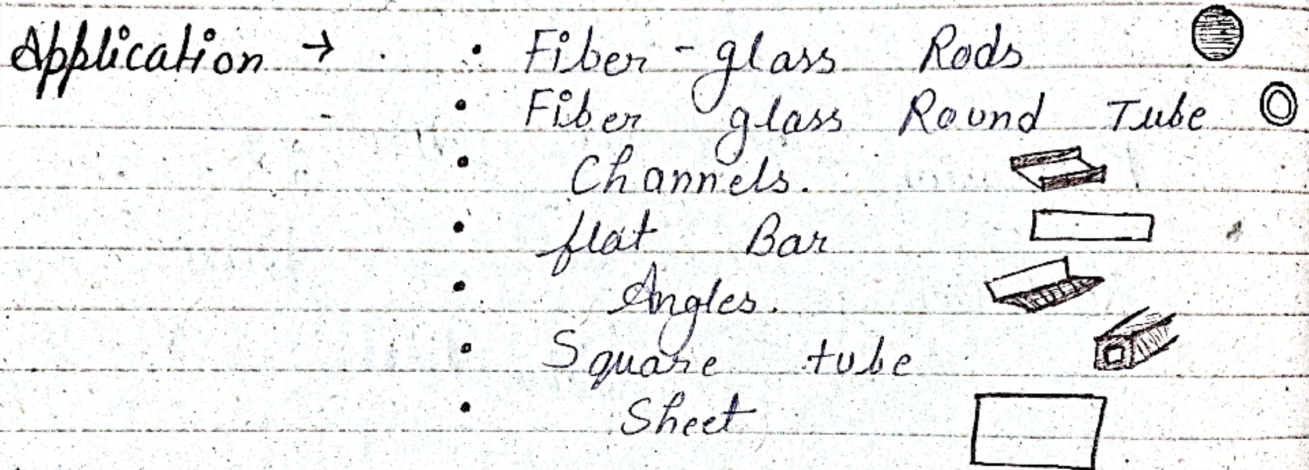 Application → • Fiber-glass Rods
• Fiber glass Round Tube
• Channels.
• flat Bar
• Angles.
• Square tube
• Sheet